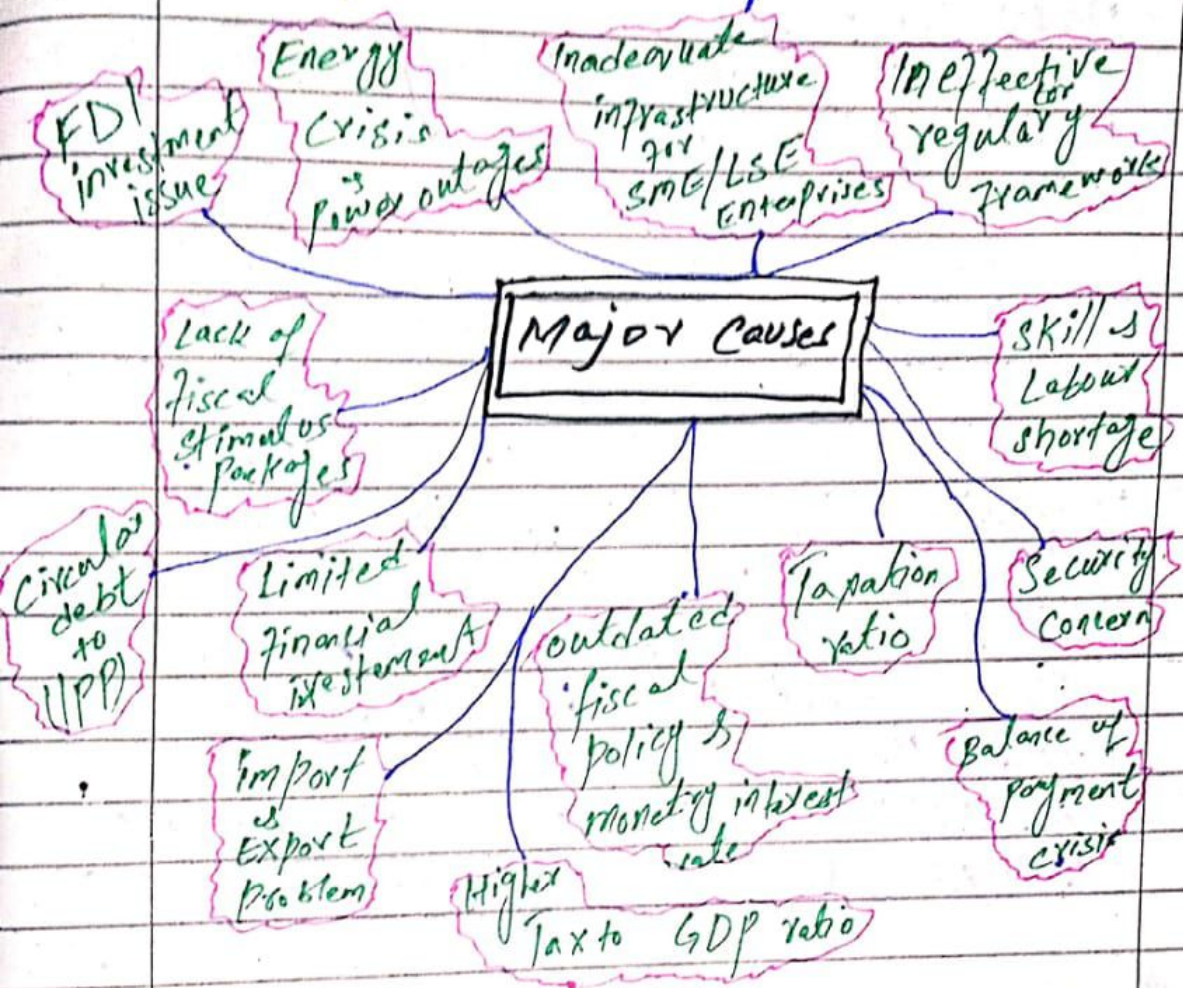 FDI
investment
issue
Energy
Crisis
&
Power outages
Inadequate
infrastructure
for
SME/LSE
Enterprises
Ineffective
regulatory
framework
Major Causes
Lack of
fiscal
stimulus
packages
Skill &
Labour
shortage
Circular
debt
to
(IPP)
Limited
financial
ivestement
outdated
fiscal
policy &
monetry interest
rate
Taxation
ratio
Security
Concern
import
&
Export
problem
Balance of
payment
crisis
Higher
Tax to GDP ratio